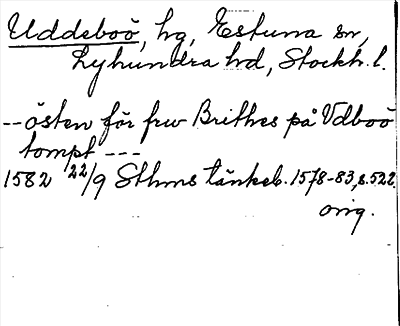 Uddeboö, hg, Estuna sn,
Lyhundra hd, Stockh. l.
-- östen för frw Brithes på Vdboö
tompt ---
1582 22/9 Sthms tänkeb. 1578-83, s. 522.
orig.